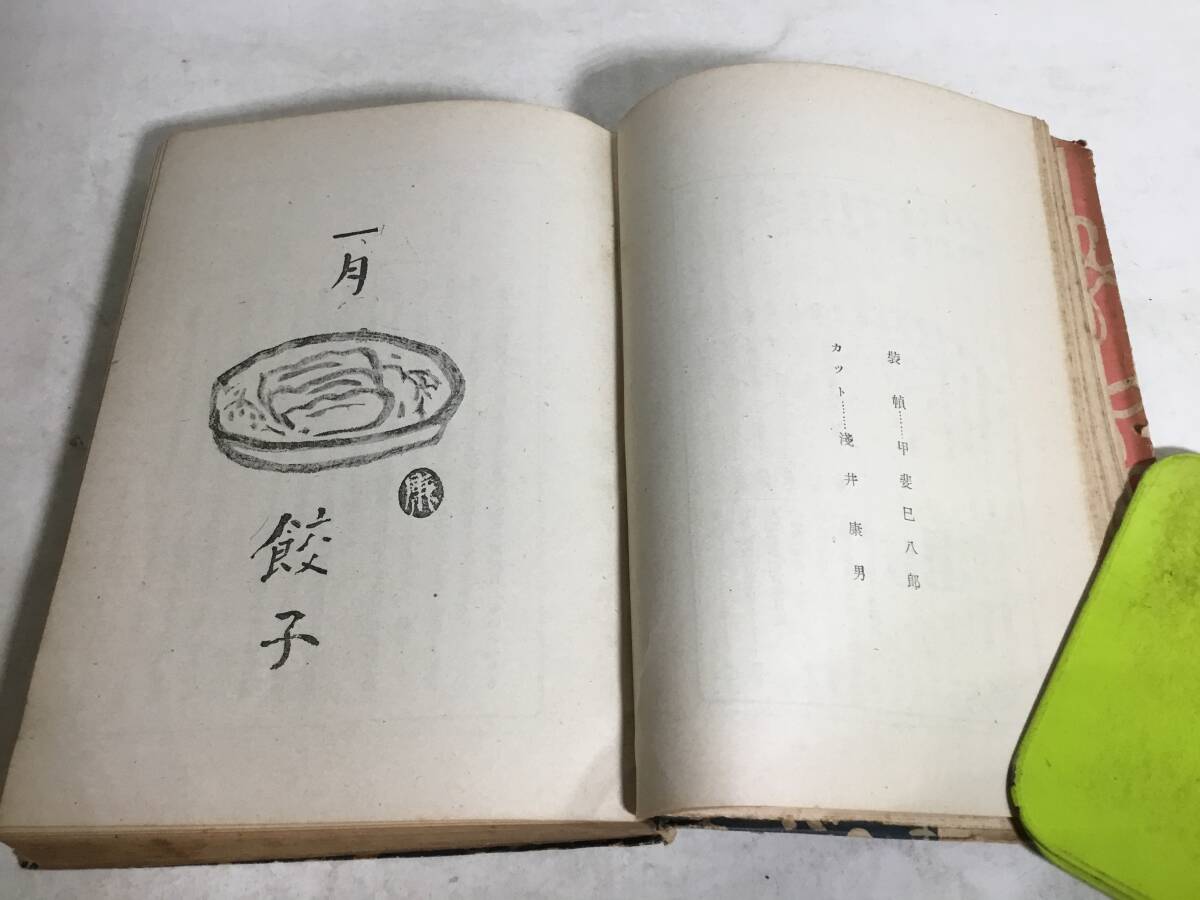 装幀……甲斐巳八郎
カット……淺井康男
一月
餃子
康